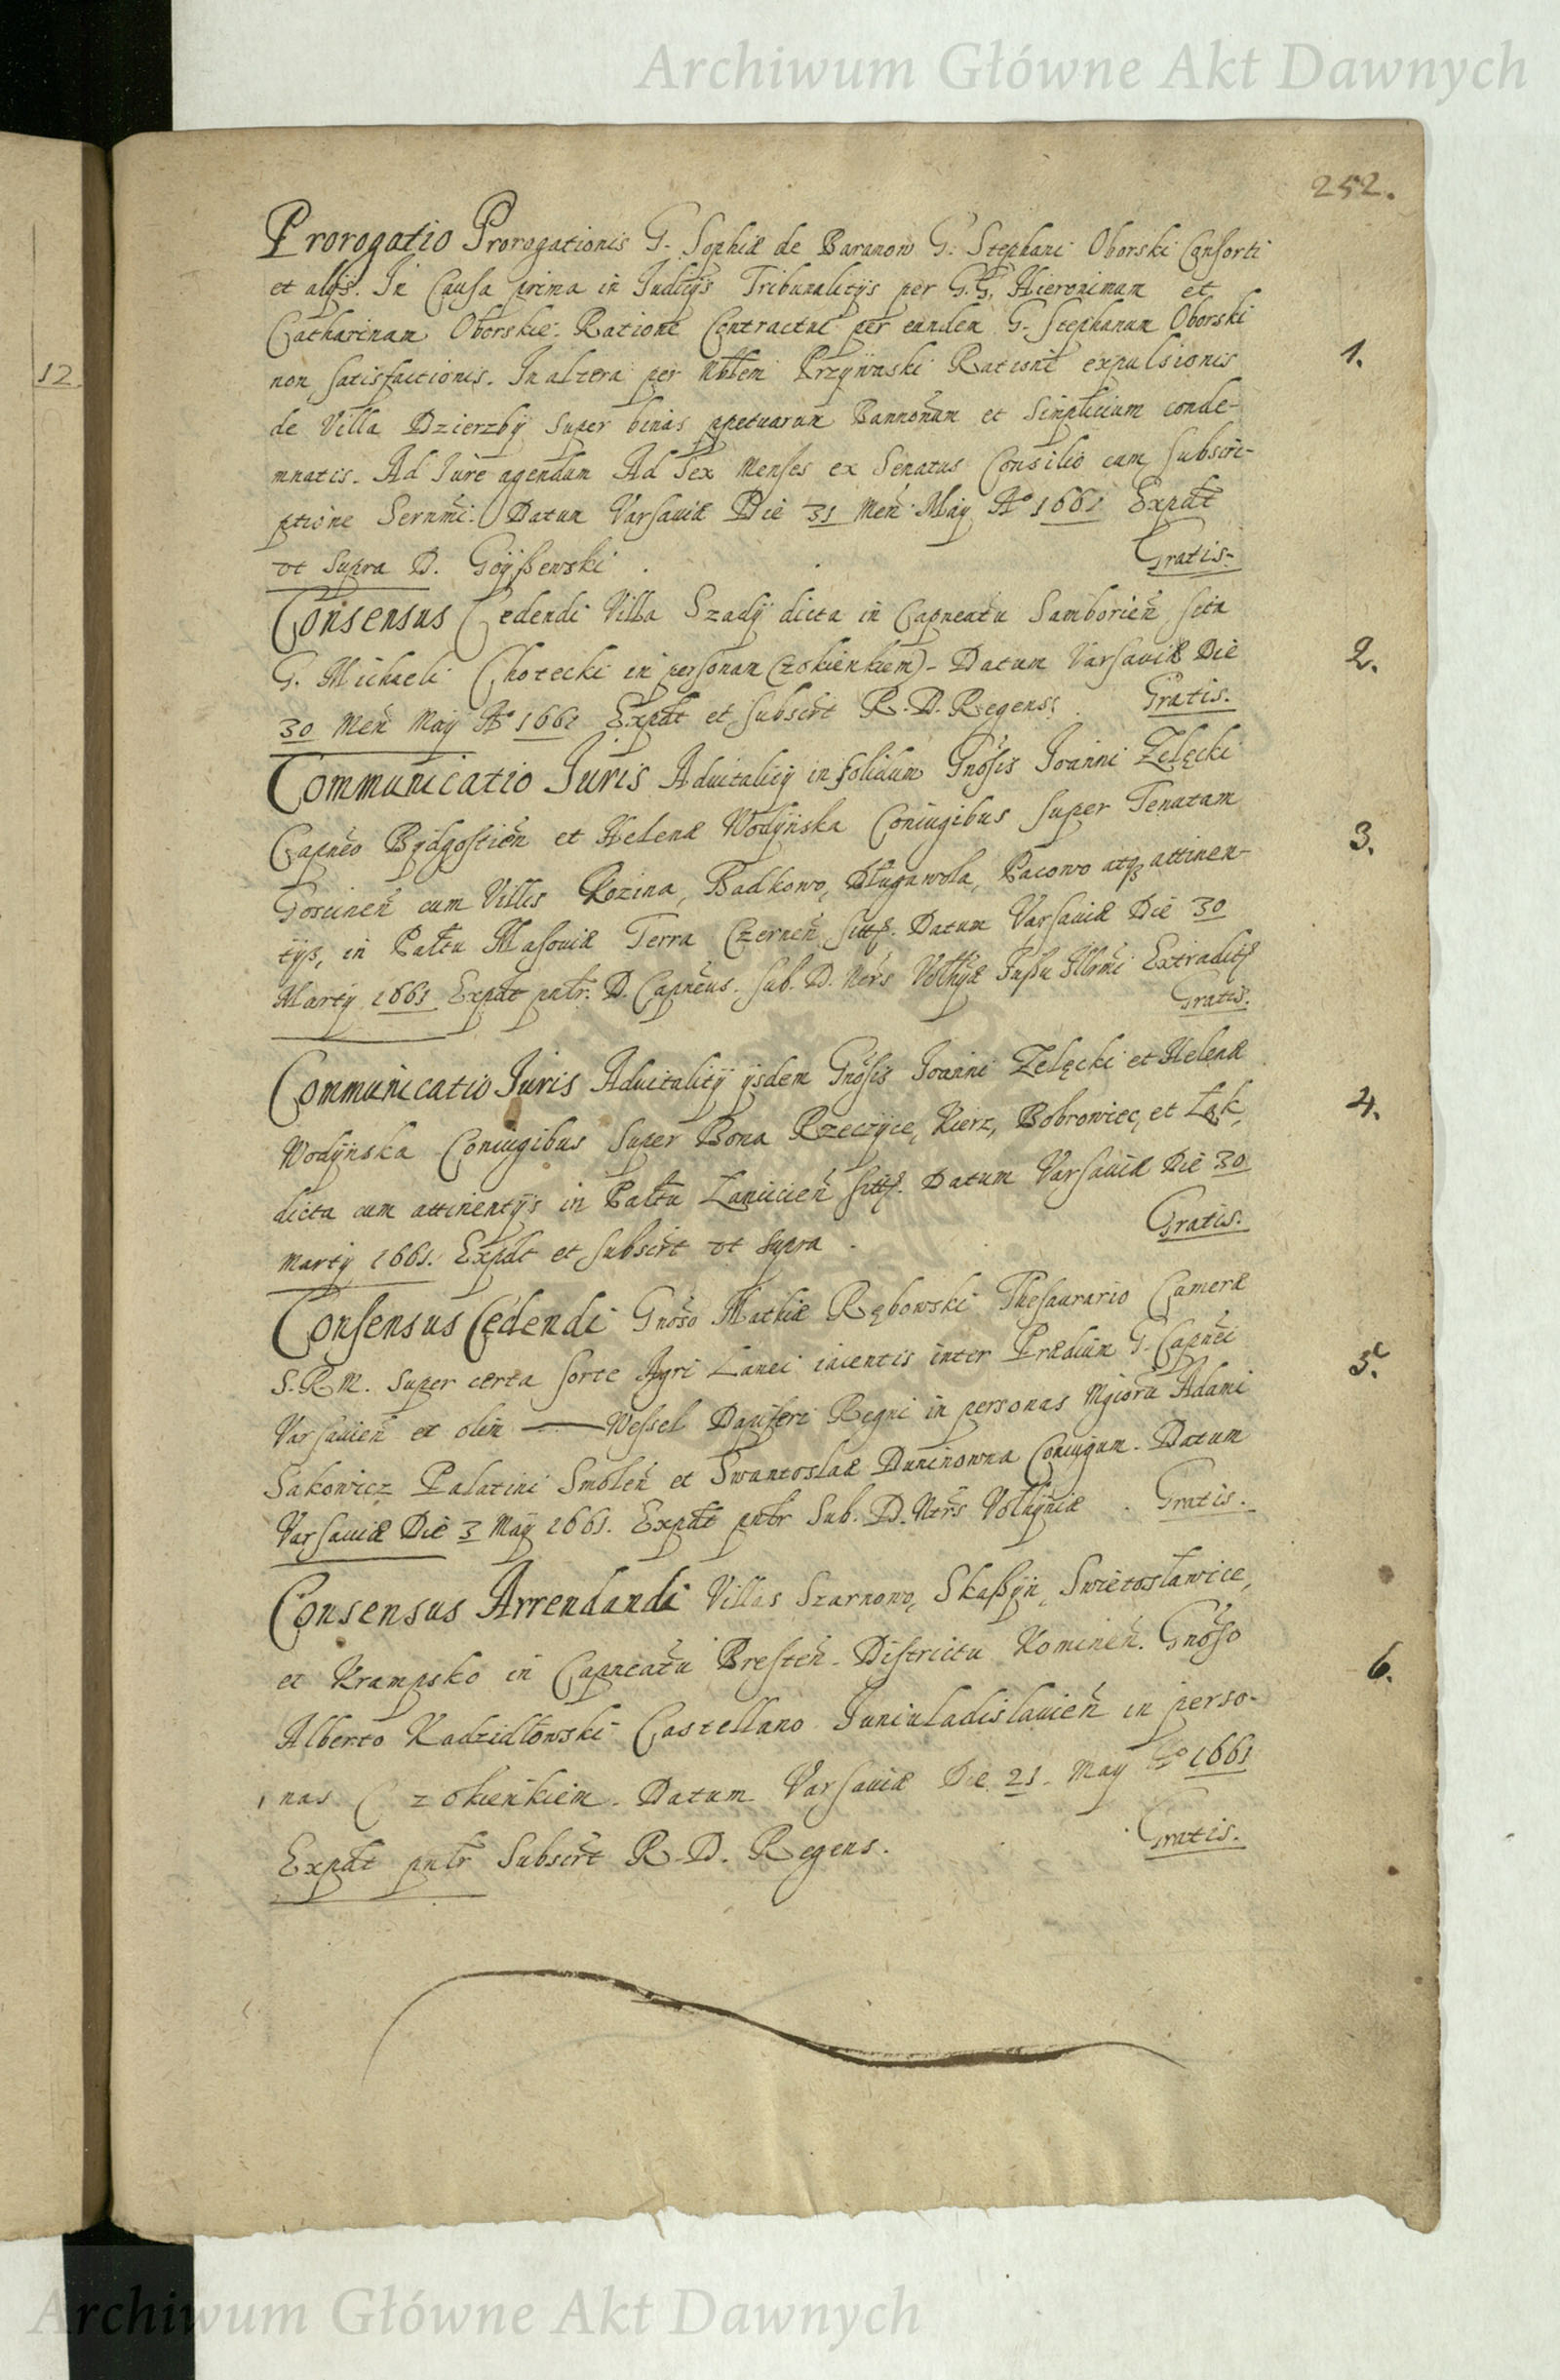 Archiwum Główne Akt Dawnych
252.
12.
Prorogatio Prorogationis G. Sophiæ de Baranow G. Stephani Oborski Consorti
et alijs. In Causa prima in Iudicijs Tribunalitijs per G.G. Hieronimum et
Catharinam Oborskie. Ratione Contractui per eundem G. Stephanum Oborski
non satisfactionis. In altera per Nblem Krzywnski Ratione expulsionis 1.
de Villa Dzierzby super binas ppetuarum Bannonum et Simplicium conde-
mnatis. Ad Iure agendum Ad Sex Menses ex Senatus Consilio cum Subscri-
ptione Sernmi. Datum Varsaviæ Die 31 Men May Ao 1661 Expdt
vt Supra D. Goyßewski. Gratis.
Consensus Cedendi Villa Szady dicta in Capneatu Samborien sita
G. Michaeli Chotecki in personam Czokienkiem - Datum Varsaviæ Die 2.
30 Men May Ao 1661 Expdt et subscrt R. D. Regens. Gratis.
Communicatio Iuris Aduitalitij in solidum Gnosis Ioanni Zelęcki
Capneo Bydgostien et Helenæ Wodynska Coniugibus super Tenutam 3.
Goscinen cum Villis Rozina, Badkowo, Długawola, Pacowo atq attinen-
tijs, in Paltu Masoviæ Terra Czernen sittis. Datum Varsaviæ Die 30
Martij 1661 Expdt pntr. D. Capneus. Sub. D. Ntrs Volhyæ Iußu Illrmi Extradits
Gratis.
Communicatio Iuris Aduitalitij ijsdem Gnosis Ioanni Zelęcki et Helenæ
Wodynska Coniugibus Super Bona Rzeczyce, Kierz, Bobrowiec, et Łęk, 4.
dicta cum attinentijs in Paltu Lanicien sittis. Datum Varsaviæ Die 30
Martij 1661. Expdt et subscrt vt supra. Gratis.
Consensus Cedendi Gnoso Mathiæ Rębowski Thesaurario Cameræ
S.R.M. Super certa sorte Agri Lanei iacentis inter Prædium G. Capnei 5.
Varsavien et olim —— Wessel Dapiferi Regni in personas Mgicoru Adami
Sakowicz Palatini Smolen et Swantoslaæ Duninowna Coniugum. Datum
Varsaviæ Die 3 May 1661. Expdt pntr Sub. D. Ntrs Volhyniæ. Gratis.
Consensus Arrendandi Villas Szarnowo, Skaßyn, Swietosławice,
et Krampsko in Capneatu Bresten. Districtu Kominen. Gnoso 6.
Alberto Kadzidłowski Castellano Iuniuladislavien in perso-
nas Czokienkiem. Datum Varsaviæ Die 21. May Ao 1661
Expdt pntr Subscrt R. D. Regens. Gratis.
Archiwum Główne Akt Dawnych